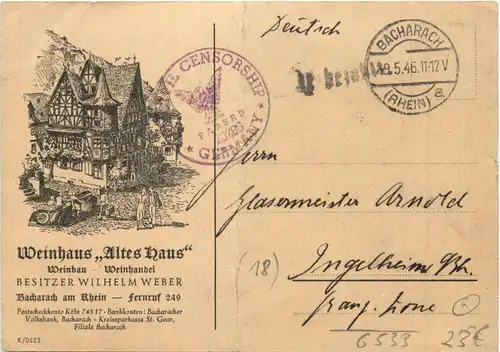 Deutsch
BACHARACH
9.5.46.11-12V
(RHEIN) a
CENSORSHIP
PASSED
GERMANY
Herrn
Glasermeister Arnold
Ingelheim Rh.
(18)
franz. Zone
6533 23€
Weinhaus „Altes Haus“
Weinbau - Weinhandel
BESITZER WILHELM WEBER
Bacharach am Rhein — Fernruf 249
Postscheckkonto Köln 74517 · Bankkonten: Bacharacher
Volksbank, Bacharach - Kreissparkasse St. Goar,
Filiale Bacharach
K/0623